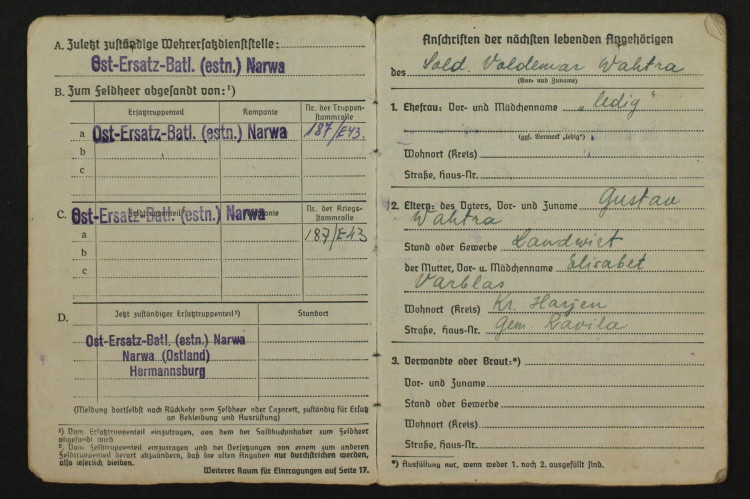 A. Zuletzt zuständige Wehrersatzdienststelle:
Ost-Ersatz-Batl. (estn.) Narwa
B. Zum Feldheer abgesandt von:¹)
Ersatztruppenteil Kompanie Nr. der Truppen-
stammrolle
a Ost-Ersatz-Batl. (estn.) Narwa 187/E43.
b
c
C. Feldtruppenteil²) Kompanie Nr. der Kriegs-
stammrolle
Ost-Ersatz-Batl. (estn.) Narwa
a 187/E43
b
c
D. Jetzt zuständiger Ersatztruppenteil²) Standort
Ost-Ersatz-Batl. (estn.) Narwa
Narwa (Ostland)
Hermannsburg
(Meldung dortselbst nach Rückkehr vom Feldheer oder Lazarett, zuständig für Ersatz
an Bekleidung und Ausrüstung)
¹) Vom Ersatztruppenteil einzutragen, von dem der Soldbuchinhaber zum Feldheer
abgesandt wird.
²) Vom Feldtruppenteil einzutragen und bei Versetzungen von einem zum anderen
Feldtruppenteil derart abzuändern, daß die alten Angaben nur durchstrichen werden,
also leserlich bleiben.
Weiterer Raum für Eintragungen auf Seite 17.
Anschriften der nächsten lebenden Angehörigen
des Sold. Voldemar Wahtra
(Vor- und Zuname)
1. Ehefrau: Vor- und Mädchenname „ledig"
(ggf. Vermerk „ledig")
Wohnort (Kreis)
Straße, Haus-Nr.
2. Eltern: des Vaters, Vor- und Zuname Gustav
Wahtra
Stand oder Gewerbe Landwirt
der Mutter, Vor- u. Mädchenname Elisabet
Varblas
Wohnort (Kreis) Kr. Harjen
Straße, Haus-Nr. Gem. Ravila
3. Verwandte oder Braut:*)
Vor- und Zuname
Stand oder Gewerbe
Wohnort (Kreis)
Straße, Haus-Nr.
*) Ausfüllung nur, wenn weder 1. noch 2. ausgefüllt sind.